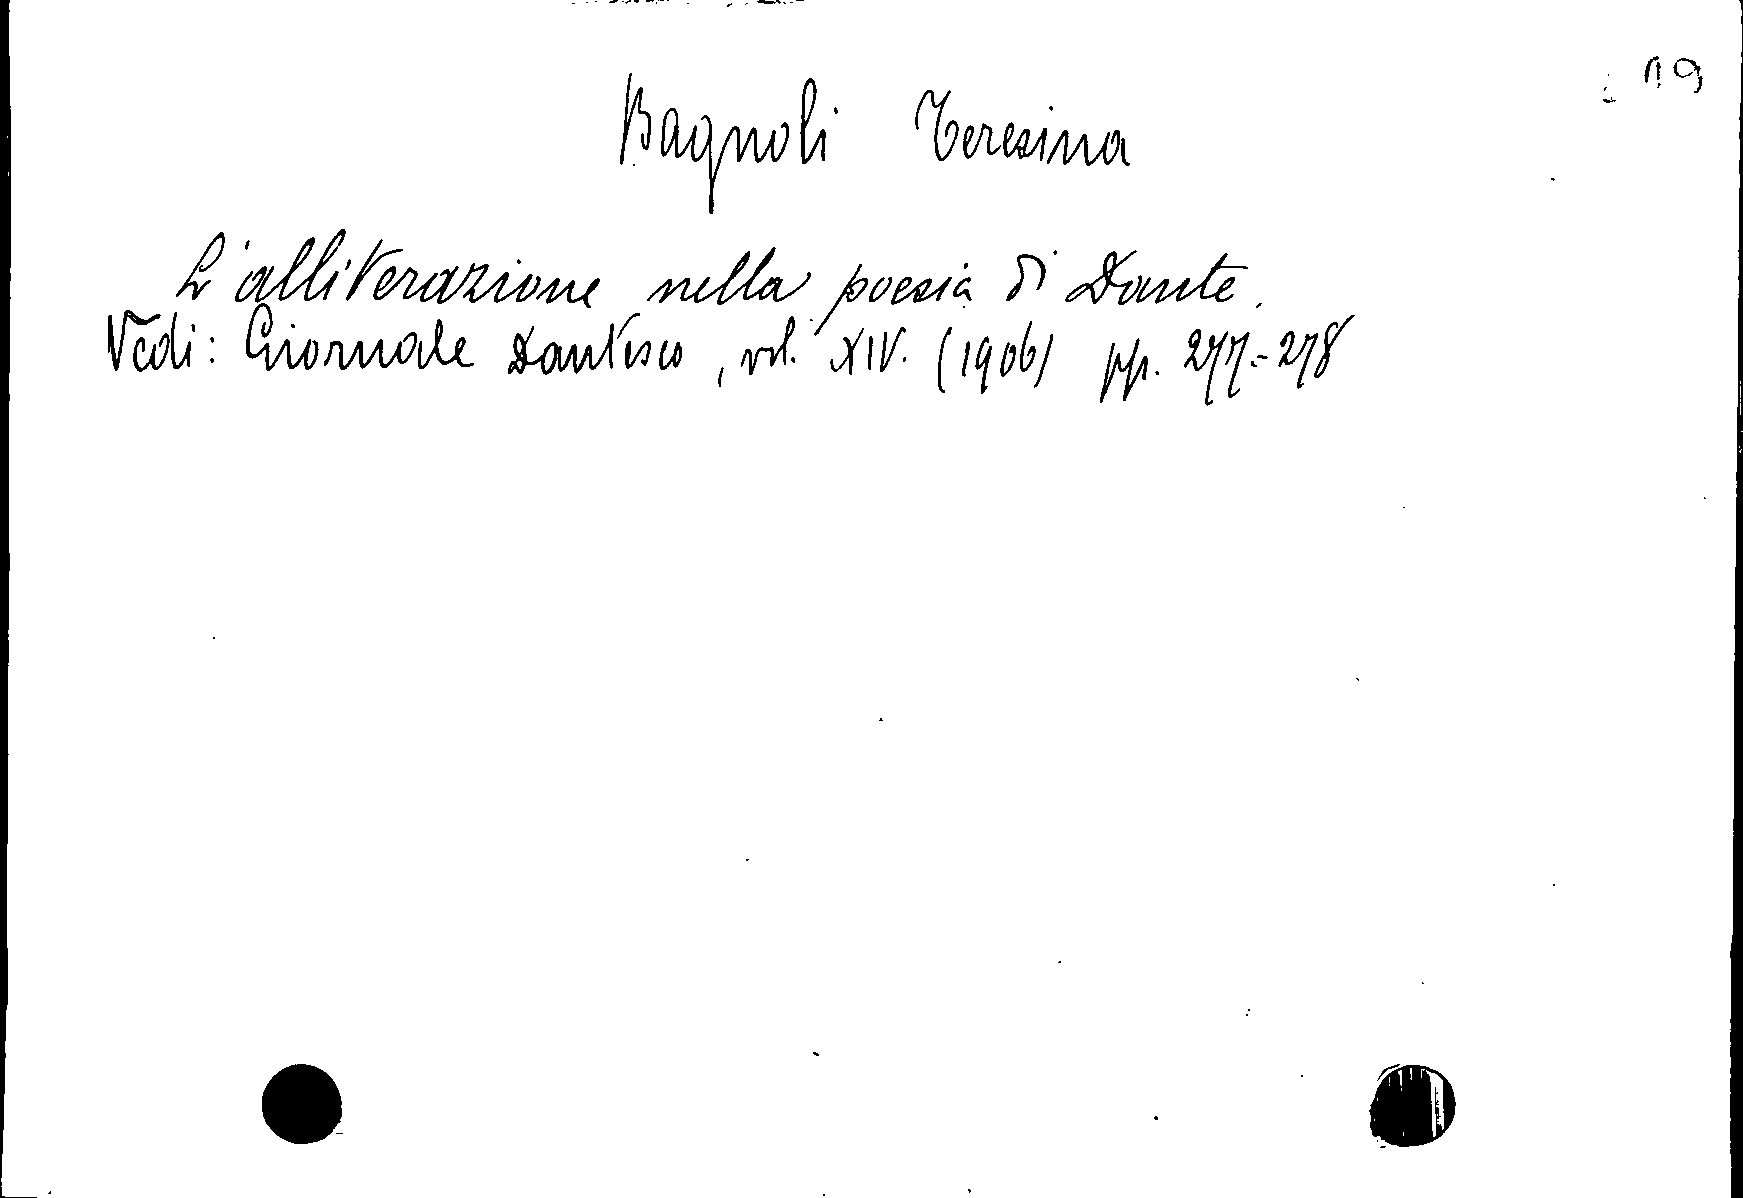 19
Bagnoli Teresina
L'alliterazione nella poesia di Dante.
Vedi: Giornale Dantesco, vol. XIV. (1906) pp. 277-278